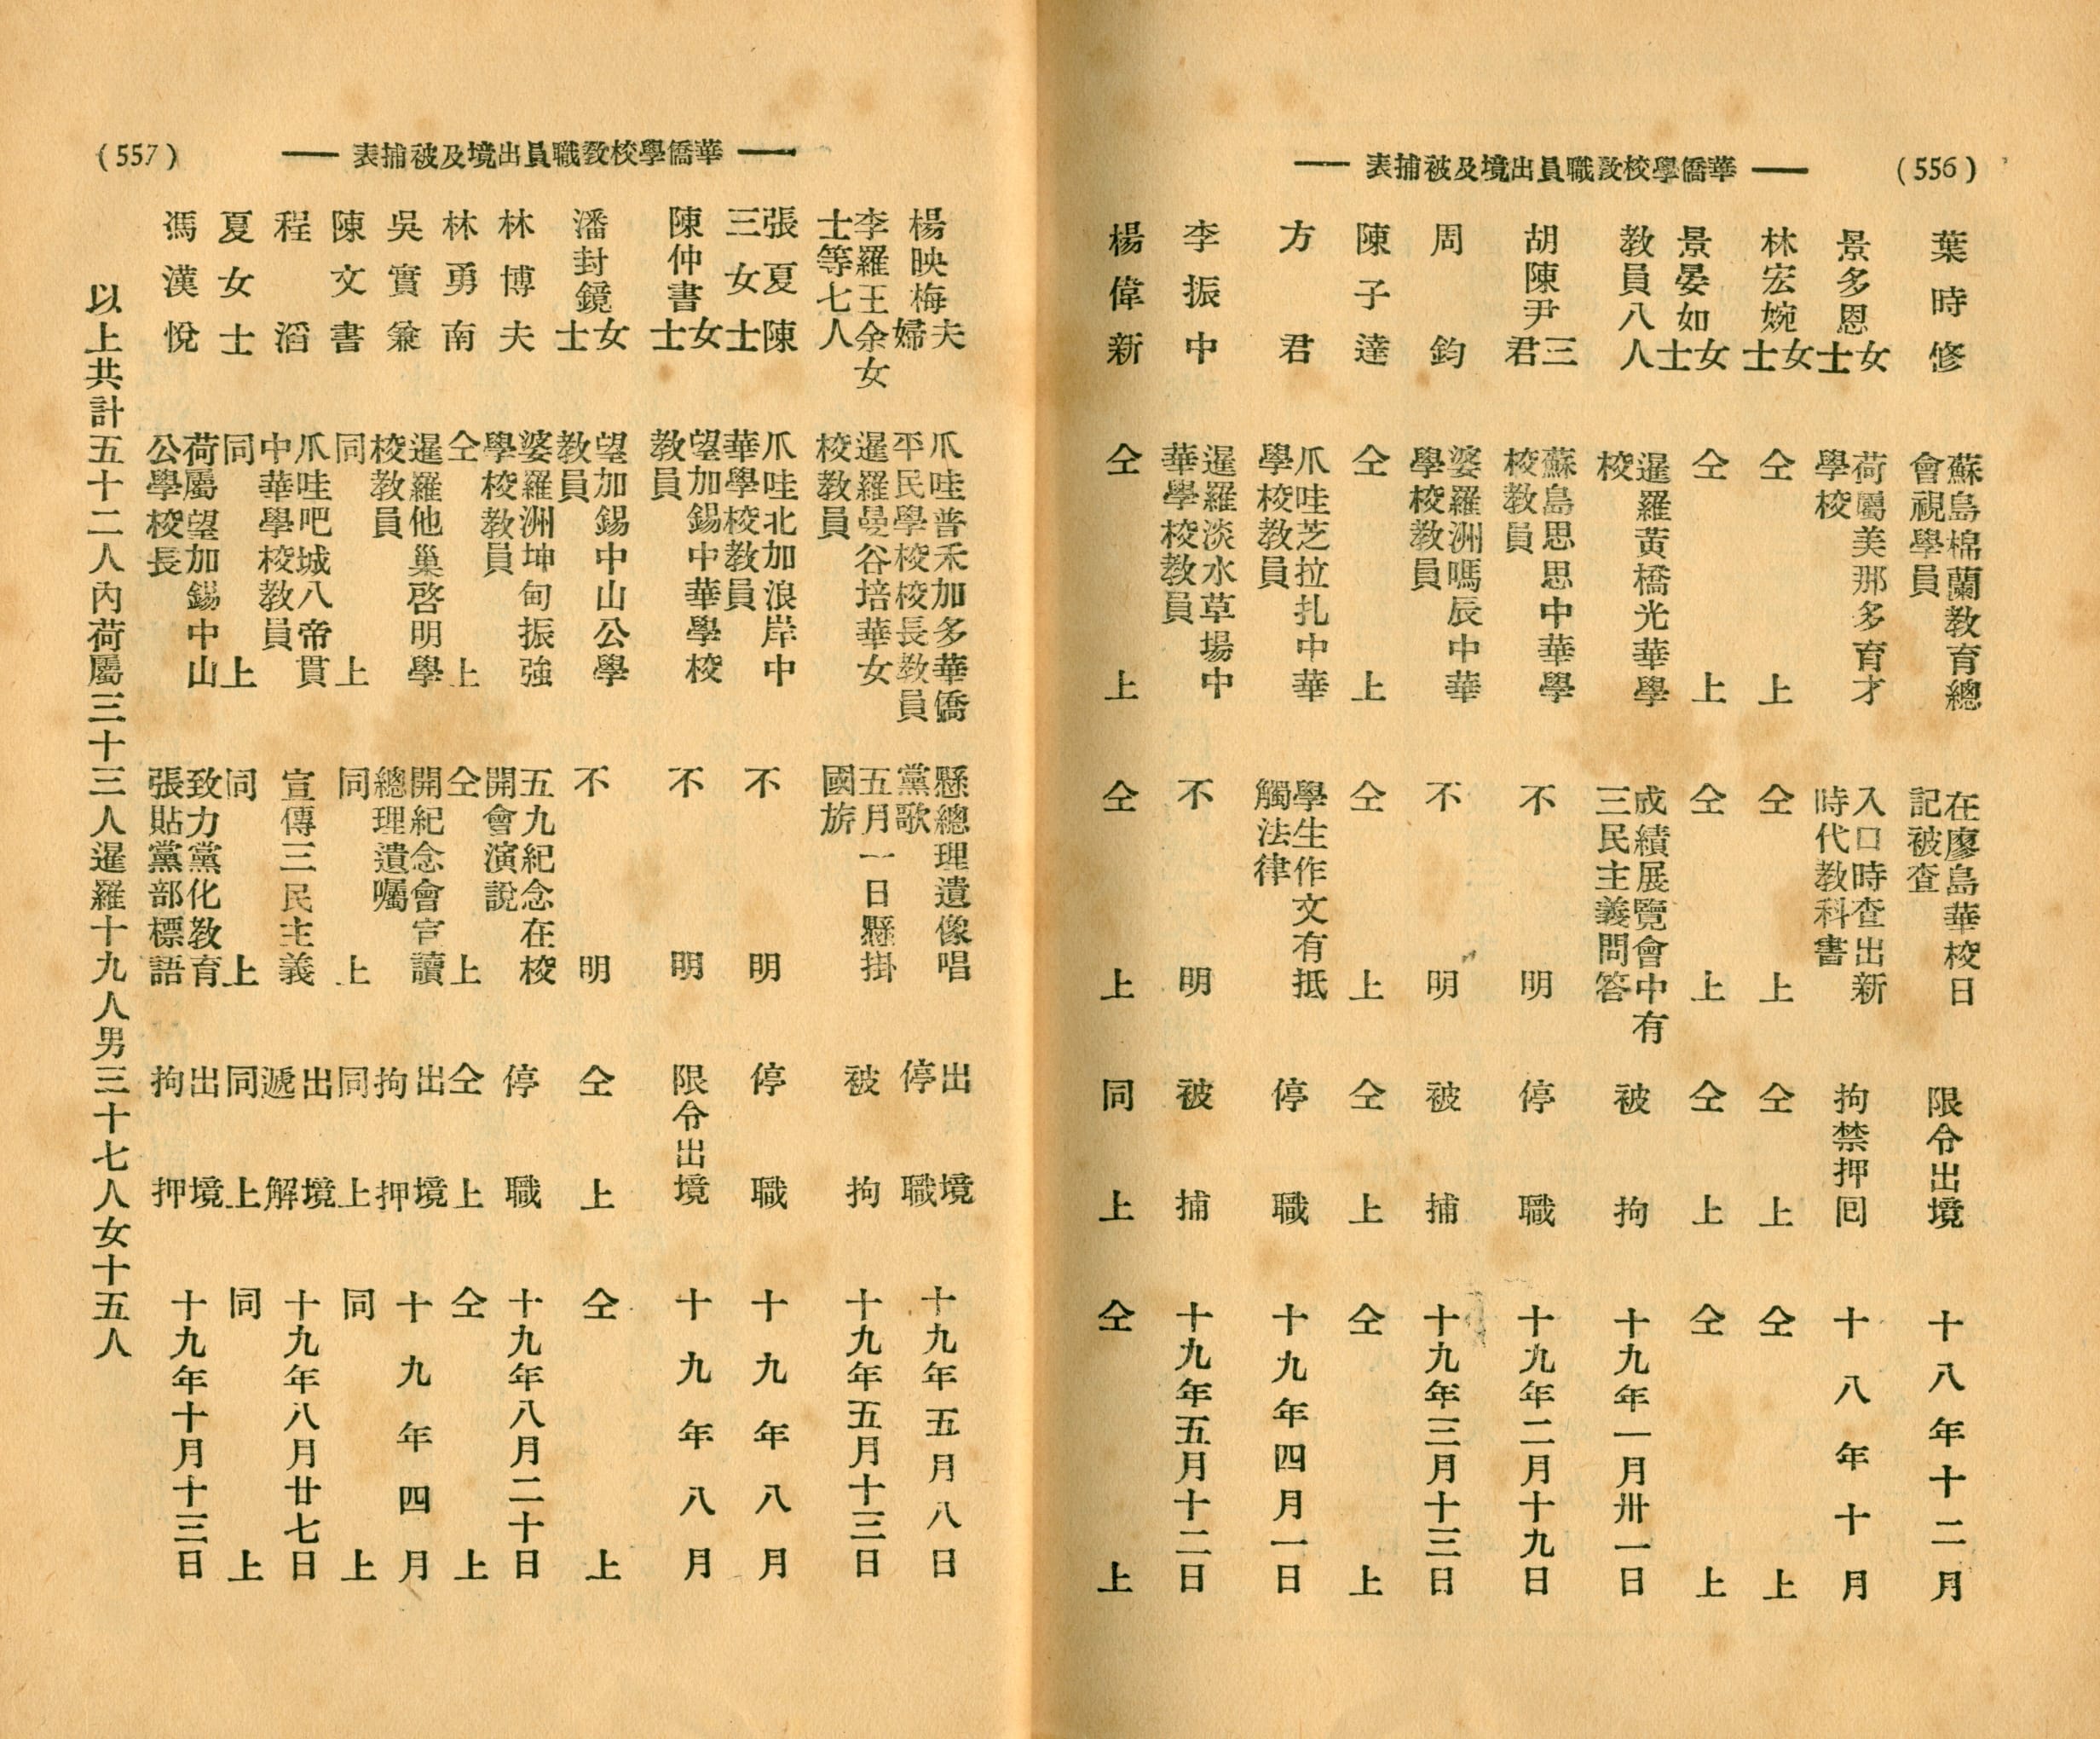 (556)
—— 華僑學校教職員出境及被捕表 ——
葉時修 蘇島棉蘭教育總會視學員 在廖島華校日記被查 限令出境 十八年十二月
景多恩女士 荷屬美那多育才學校 入口時查出新時代教科書 拘禁押囘 十八年十月
林宏婉女士 仝上 仝上 仝上 仝上
景晏如女士 仝上 仝上 仝上 仝上
教員八人 暹羅黃橋光華學校 成績展覽會中有三民主義問答 被拘 十九年一月卅一日
胡陳尹三君 蘇島思思中華學校教員 不明 停職 十九年二月十九日
周鈞 婆羅洲嗎辰中華學校教員 不明 被捕 十九年三月十三日
陳子達 仝上 仝上 仝上 仝上
方君 爪哇芝拉扎中華學校教員 學生作文有抵觸法律 停職 十九年四月一日
李振中 暹羅淡水草場中華學校教員 不明 被捕 十九年五月十二日
楊偉新 仝上 仝上 同上 仝上
—— 華僑學校教職員出境及被捕表 ——
(557)
楊映梅夫婦 爪哇普禾加多華僑平民學校校長教員 懸總理遺像唱黨歌 出境停職 十九年五月八日
李羅王余女士等七人 暹羅曼谷培華女校教員 五月一日懸掛國旂 被拘 十九年五月十三日
張夏陳三女士 爪哇北加浪岸中華學校教員 不明 停職 十九年八月
陳仲書女士 望加錫中華學校教員 不明 限令出境 十九年八月
潘封鏡女士 望加錫中山公學教員 不明 仝上 仝上
林博夫 婆羅洲坤甸振強學校教員 五九紀念在校開會演說 停職 十九年八月二十日
林勇南 仝上 仝上 仝上 仝上
吳實兼 暹羅他巢啓明學校教員 開紀念會宣讀總理遺囑 出境拘押 十九年四月
陳文書 同上 同上 同上 同上
程滔 爪哇吧城八帝貫中華學校教員 宣傳三民主義 出境遞解 十九年八月廿七日
夏女士 同上 同上 同上 同上
馮漢悅 荷屬望加錫中山公學校長 致力黨化教育張貼黨部標語 出境拘押 十九年十月十三日
以上共計五十二人內荷屬三十三人暹羅十九人男三十七人女十五人